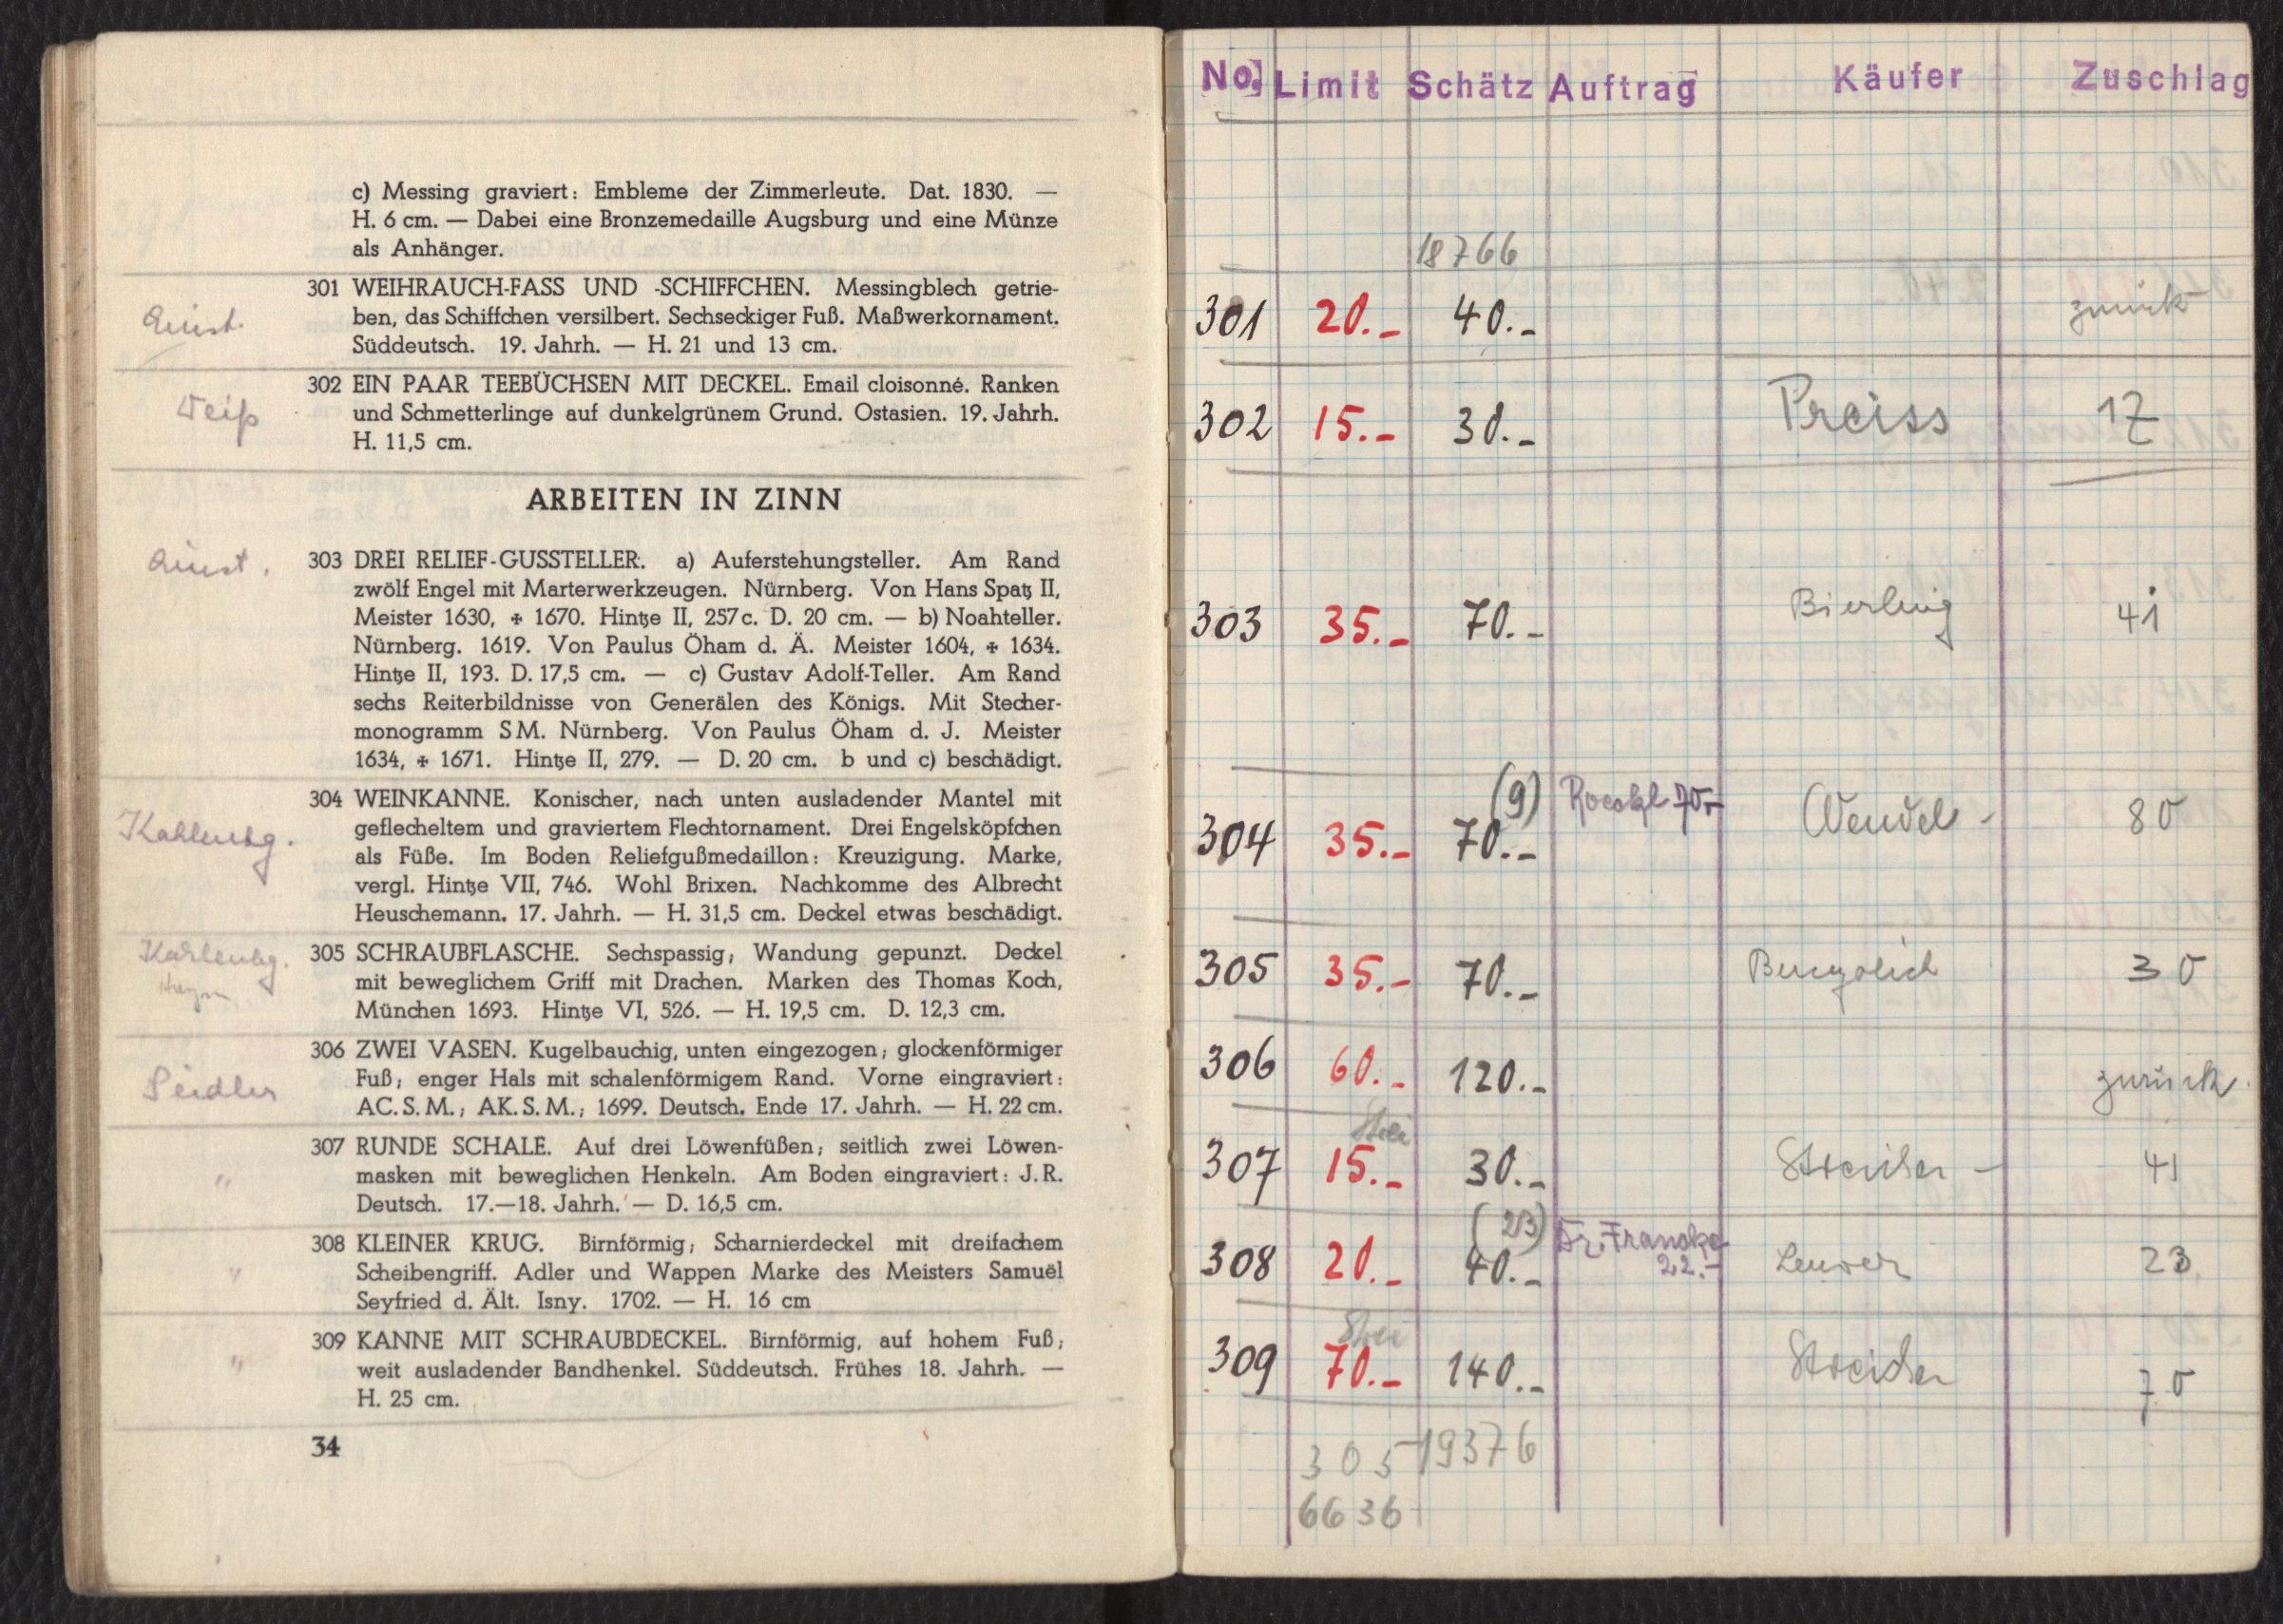 c) Messing graviert: Embleme der Zimmerleute. Dat. 1830. —
H. 6 cm. — Dabei eine Bronzemedaille Augsburg und eine Münze
als Anhänger.
301 WEIHRAUCH-FASS UND -SCHIFFCHEN. Messingblech getrie-
ben, das Schiffchen versilbert. Sechseckiger Fuß. Maßwerkornament.
Süddeutsch. 19. Jahrh. — H. 21 und 13 cm.
Weiß
302 EIN PAAR TEEBÜCHSEN MIT DECKEL. Email cloisonné. Ranken
und Schmetterlinge auf dunkelgrünem Grund. Ostasien. 19. Jahrh.
H. 11,5 cm.
ARBEITEN IN ZINN
303 DREI RELIEF-GUSSTELLER. a) Auferstehungsteller. Am Rand
zwölf Engel mit Marterwerkzeugen. Nürnberg. Von Hans Spatz II,
Meister 1630, ✠ 1670. Hintze II, 257c. D. 20 cm. — b) Noahteller.
Nürnberg. 1619. Von Paulus Öham d. Ä. Meister 1604, ✠ 1634.
Hintze II, 193. D. 17,5 cm. — c) Gustav Adolf-Teller. Am Rand
sechs Reiterbildnisse von Generälen des Königs. Mit Stecher-
monogramm SM. Nürnberg. Von Paulus Öham d. J. Meister
1634, ✠ 1671. Hintze II, 279. — D. 20 cm. b und c) beschädigt.
Kahlenbg.
304 WEINKANNE. Konischer, nach unten ausladender Mantel mit
geflecheltem und graviertem Flechtornament. Drei Engelsköpfchen
als Füße. Im Boden Reliefgußmedaillon: Kreuzigung. Marke,
vergl. Hintze VII, 746. Wohl Brixen. Nachkomme des Albrecht
Heuschemann. 17. Jahrh. — H. 31,5 cm. Deckel etwas beschädigt.
Kahlenbg.
305 SCHRAUBFLASCHE. Sechspassig; Wandung gepunzt. Deckel
mit beweglichem Griff mit Drachen. Marken des Thomas Koch,
München 1693. Hintze VI, 526. — H. 19,5 cm. D. 12,3 cm.
Seidler
306 ZWEI VASEN. Kugelbauchig, unten eingezogen; glockenförmiger
Fuß; enger Hals mit schalenförmigem Rand. Vorne eingraviert:
AC. S. M.; AK. S. M.; 1699. Deutsch. Ende 17. Jahrh. — H. 22 cm.
"
307 RUNDE SCHALE. Auf drei Löwenfüßen; seitlich zwei Löwen-
masken mit beweglichen Henkeln. Am Boden eingraviert: J. R.
Deutsch. 17.—18. Jahrh. — D. 16,5 cm.
"
308 KLEINER KRUG. Birnförmig; Scharnierdeckel mit dreifachem
Scheibengriff. Adler und Wappen Marke des Meisters Samuël
Seyfried d. Ält. Isny. 1702. — H. 16 cm
"
309 KANNE MIT SCHRAUBDECKEL. Birnförmig, auf hohem Fuß;
weit ausladender Bandhenkel. Süddeutsch. Frühes 18. Jahrh. —
H. 25 cm.
34
No. Limit Schätz Auftrag Käufer Zuschlag
18766
301 20.- 40.- zurück
302 15.- 30.- Preiss 17
303 35.- 70.- Bierling 41
(9)
304 35.- 70.- 70.- Wendel - 80
305 35.- 70.- 30
306 60.- 120.- zurück
307 15.- 30.- Streicher - 41
(23) Dr. Franske
308 20.- 40.- 22.- 23
309 70.- 140.- Streicher 70
305 19376
6636